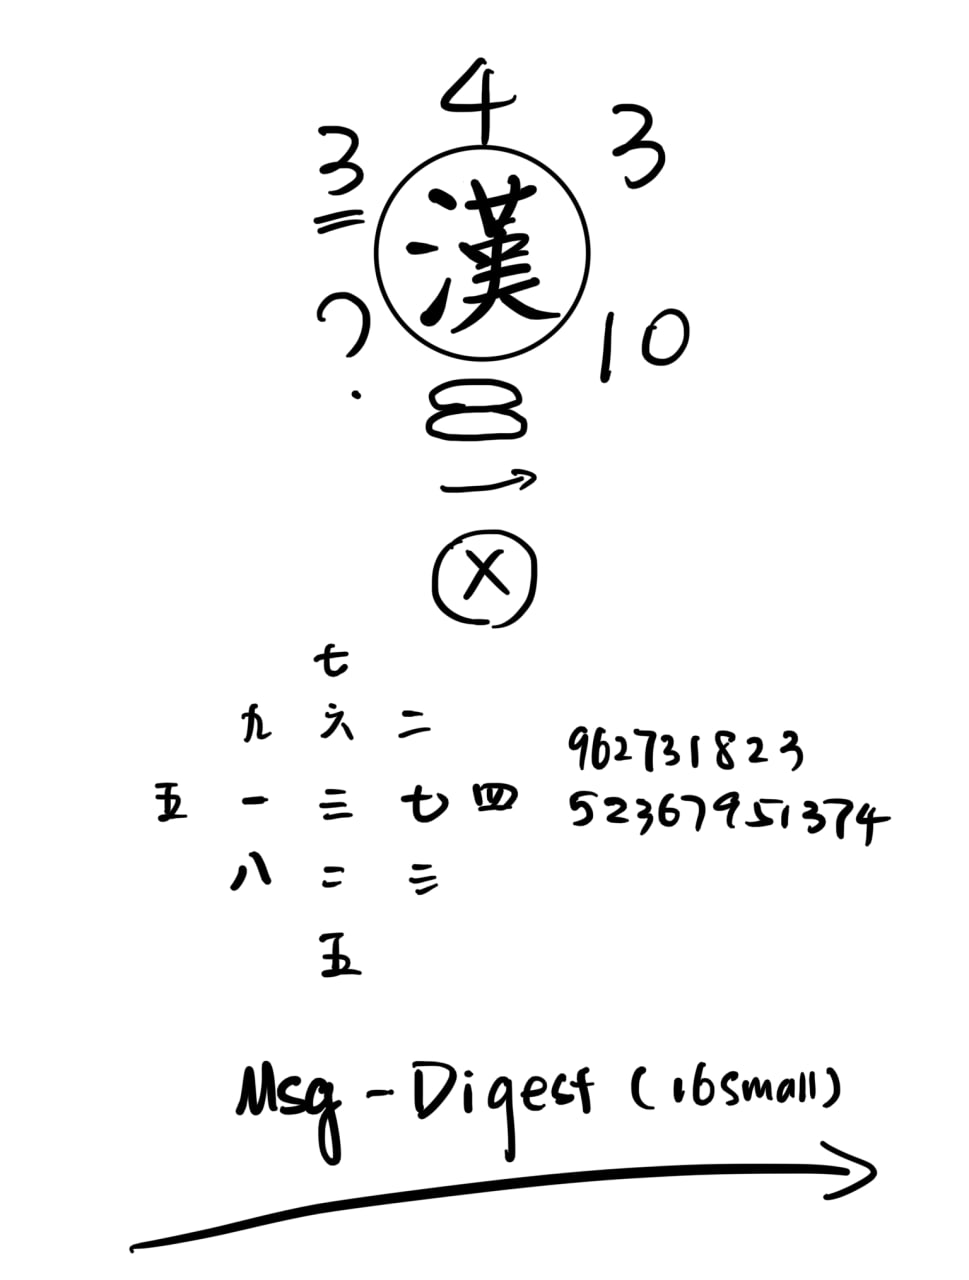 4
3 3
漢
? 10
8
→
X
七
九 六 二
五 一 三 七 四
八 二 三
五
962731823
52367951374
Msg-Digest (16small)